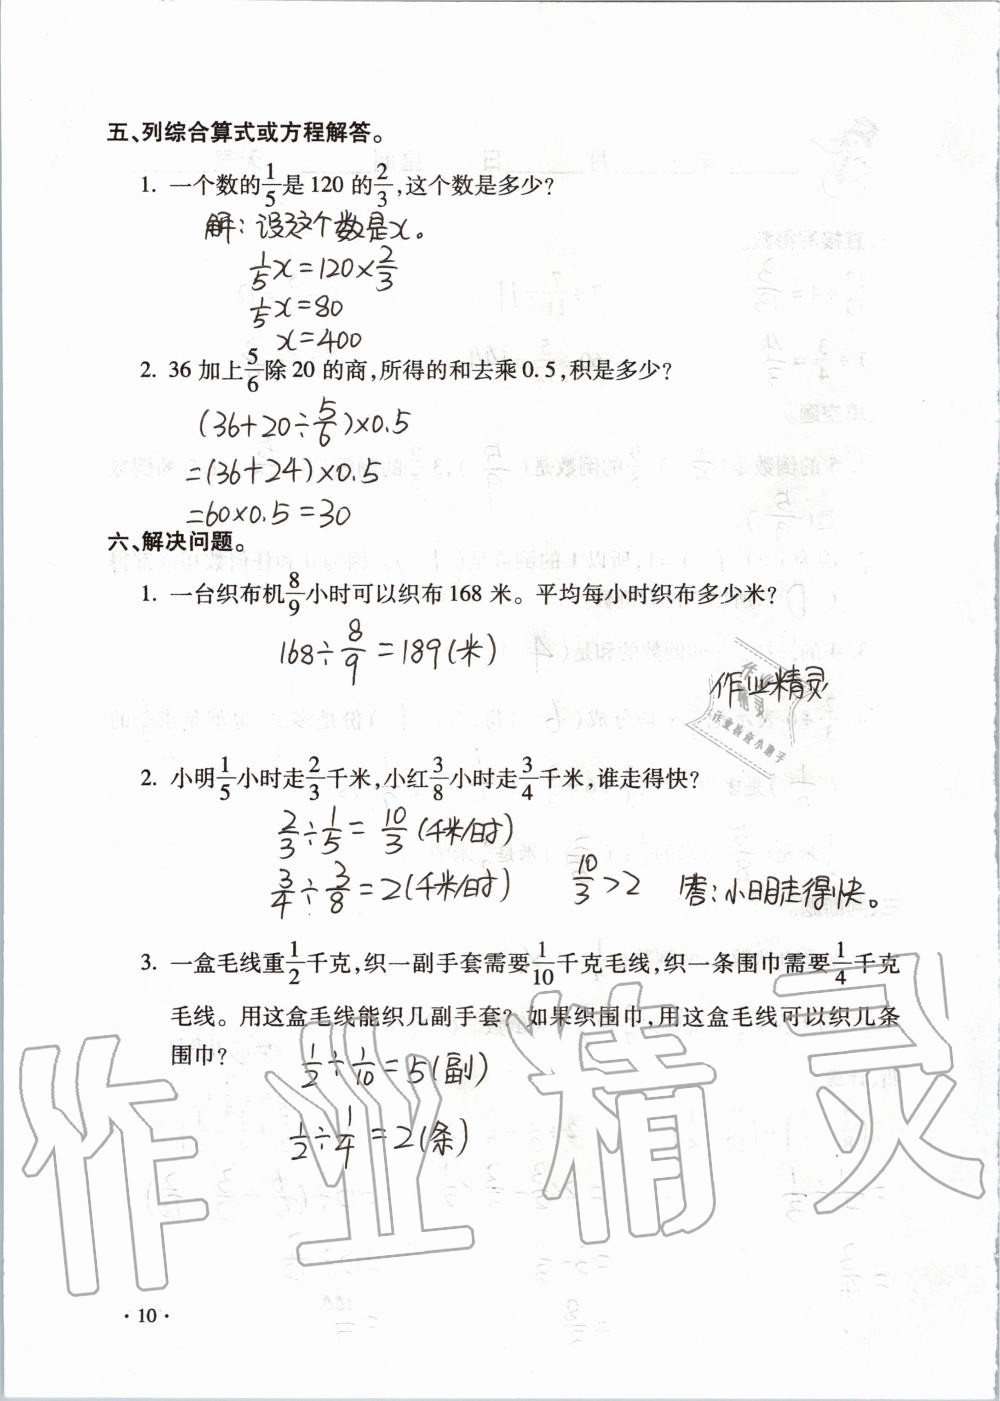 五、列综合算式或方程解答。
1. 一个数的1/5是120的2/3,这个数是多少?
解:设这个数是x。
1/5x=120×2/3
1/5x=80
x=400
2. 36加上5/6除20的商,所得的和去乘0.5,积是多少?
(36+20÷5/6)×0.5
=(36+24)×0.5
=60×0.5=30
六、解决问题。
1. 一台织布机8/9小时可以织布168米。平均每小时织布多少米?
168÷8/9=189(米)
作业精灵
2. 小明1/5小时走2/3千米,小红3/8小时走3/4千米,谁走得快?
2/3÷1/5=10/3(千米/时)
3/4÷3/8=2(千米/时) 10/3>2 答:小明走得快。
3. 一盒毛线重1/2千克,织一副手套需要1/10千克毛线,织一条围巾需要1/4千克
毛线。用这盒毛线能织几副手套?如果织围巾,用这盒毛线可以织几条
围巾?
1/2÷1/10=5(副)
1/2÷1/4=2(条)
作业精灵
·10·